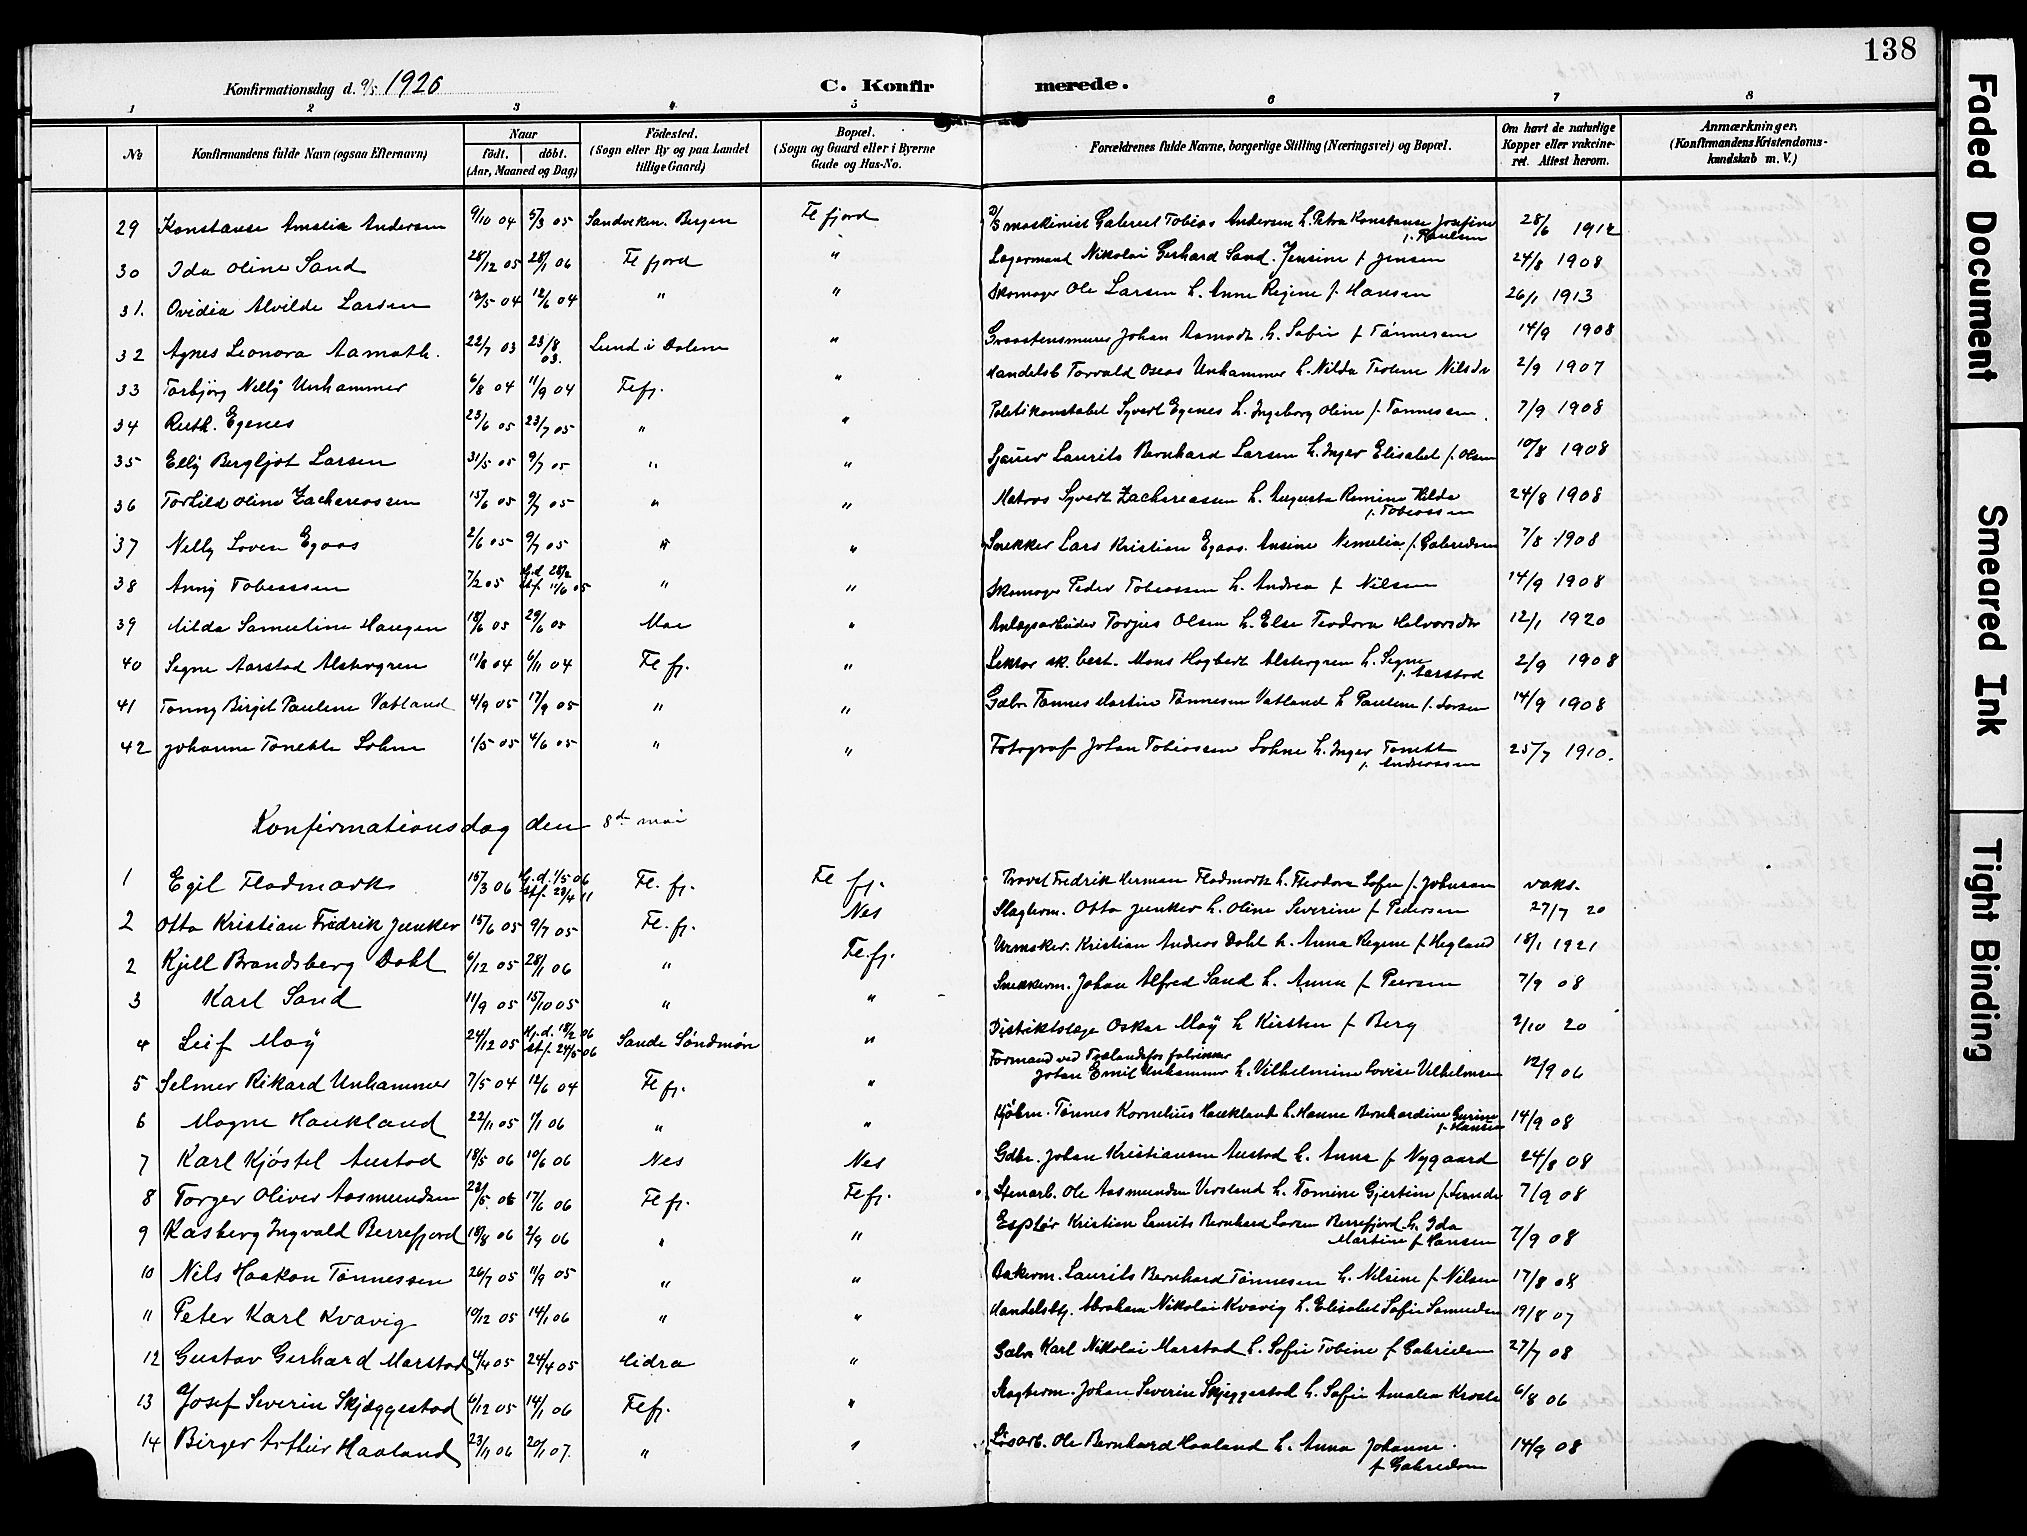 138
Konfirmationsdag d. 9/5 1920
C. Konfirmerede.
1 2 3 4 5 6 7 8
No Konfirmandens fulde Navn (ogsaa Efternavn) Naar født. døbt. (Aar, Maaned og Dag) Fødested. (Sogn eller By og paa Landet tillige Gaard) Bopæl. (Sogn og Gaard eller i Byerne Gade og Hus-No. Forældrenes fulde Navne, borgerlige Stilling (Næringsvei) og Bopæl. Om havt de naturlige Kopper eller vakcineret. Attest herom. Anmærkninger. (Konfirmandens Kristendomskundskab m. V.)
29 Konstanse Amalia Andersen 9/10 04 5/3 05 Sandviken. Bergen Fl fjord maskinist Gabriel Tobias Andersen h. Petra Konstanse Josefine f. Paulsen 28/6 1912
30 Ida Oline Sand 28/12 05 28/1 06 Fl fjord " Lagermand Nikolai Gerhard Sand. Jensine f Jensen 24/8 1908
31. Ovidia Alvilde Larsen 12/5 04 12/6 04 " " Skomager Ole Larsen h. Anne Regine f. Hansen 26/1 1913
32 Agnes Leonora Aamoth. 22/7 03 23/8 03. Lund i Dalene " Graastensmurer Johan Aamodt h. Sofie f Tønnesen 14/9 1908
33 Torbjørg Nelly Unhammer 6/8 04 11/9 04 Flfj. " Handelsb Torvald Oseas Unhammer h. Nilda Teoline Nilsdr 2/9 1907
34 Ruth. Egenes 23/6 05 23/7 05 " " Politikonstabel Syvert Egenes h. Ingeborg Oline f. Tønnesen 7/9 1908
35 Elly Bergljot Larsen 31/5 05 9/7 05 " " Sjauer Laurits Bernhard Larsen h. Inger Elisabet f. Olsen 10/8 1908
36 Torhild Oline Zachariassen 15/6 05 9/7 05 " " Matros Syvert Zachariassen h. Augusta Romine Hilda f. Tobiassen 24/8 1908
37 Nelly Loven Egaas 2/6 05 9/7 05 " " Snekker Lars Kristian Egaas. Ansine Nemelia f. Gabrielsen 7/8 1908
38 Anny Tobiassen 7/2 05 H.d. 28/2 st.f. 11/6 05 " " Skomager Peder Tobiassen h. Andrea f Nilsen 14/9 1908
39 Hilda Samueline Haugen 18/6 05 29/6 05 Moi " Anlægsarbeider Torjus Olsen h. Else Teodora Halvorsdtr 12/1 1920
40 Signe Aarstad Alstergren 11/8 04 6/11 04 Fl fj. " Lektor sk. best. Mons Hagbart Alstergren h. Signe f. Aarstad 2/9 1908
41 Tonny Birgit Pauline Vatland 4/9 05 17/9 05 " " Gdbr. Tønnes Martin Tønnesen Vatland h Pauline f. Larsen 14/9 1908
42 Johanne Tonette Lohne 1/5 05 4/6 05 " " Fotograf Johan Tobiassen Lohne h. Inger Tonette f. Andreassen 25/7 1910.
Konfirmationsdag den 8de mai
1 Egil Flodmark 15/3 06 H.d. 1/5 06 st.f. 23/4 11 Fl. fj. Fl fj. Provst Fredrik Herman Flodmark h. Theodora Sofie f. Johnsen vaks.
2 Otto Kristian Fredrik Junker 15/6 05 9/7 05 Fl. fj. Nes Slagterm. Otto Junker h. Oline Severine f Pedersen 27/7 20
2 Kjell Brandsberg Dahl 6/12 05 28/1 06 " Fl. fj. Urmaker. Kristian Andreas Dahl h. Anna Regine f Hegland 18/1 1921
3 Karl Sand 11/9 05 15/10 05 " " Snekkerm. Johan Alfred Sand h. Anna f Peersen 7/9 08
4 Leif Moÿ 24/12 05 Hj.d. 18/2 06 st.f. 24/5 06 Sande Søndmør " Distriktslæge Oskar Moÿ h Kirsten f Berg 2/10 20
5 Selmer Rikard Unhammer 7/5 04 12/6 04 Fl fj. " Formand ved Trælandsfos fabrikker Johan Emil Unhammer h. Vilhelmine Lovise Vilhelmsen 12/9 06
6 Magne Haukland 22/11 05 1/1 06 " " Kjøbm. Tønnes Kornelius Haukland h. Hanne Bernhardine Gurine f. Hansen 14/9 08
7 Karl Kjøstel Austad 18/5 06 10/6 06 Nes Nes Gdbr. Johan Kristiansen Austad h. Anna f Nygaard 24/8 08
8 Torger Oliver Aasmundsen 23/5 06 17/6 06 Fl fj. Fl fj. Stenarb. Ole Aasmundsen Versland h. Tomine Gjertine f. Lunde 7/9 08
9 Kasberg Ingvald Berrefjord 18/8 06 2/9 06 " " Ekspedr Kristian Laurits Bernhard Larsen Berrefjord h. Ida Martine f Hansen 7/9 08
10 Nils Haakon Tønnessen 26/7 05 11/9 05 " " Bakerm. Laurits Bernhard Tønnesen h. Nilsine f Nilsen 17/8 08
11 Peter Karl Kvavig 10/12 05 14/1 06 " " Handelsbtj. Abraham Nikolai Kvavig h. Elisabet Sofie Samuelsen 19/8 07
12 Gustav Gerhard Marstad 4/4 05 24/4 05 Hidra " Gdbr. Karl Nikolai Marstad h. Sofie Tobine f Gabrielsen 27/7 08
13 Josef Severin Skjæggestad 6/12 05 14/1 06 Fl fj. " Slagterm. Johan Severin Skjæggestad h. Sofie Amalia 6/8 06
14 Birger Arthur Haaland 23/11 06 20/1 07. " " Løsarb. Ole Bernhard Haaland h. Anna Johanne f Gabrielsen 14/9 08
Faded Document
Smeared Ink
Tight Binding